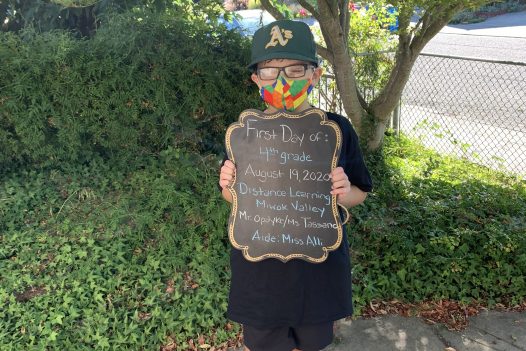 A's
First Day of:
4th grade
August 19, 2020
Distance Learning
Miwok Valley
Mr. Opdyke/Ms Tassano
Aide: Miss Alli